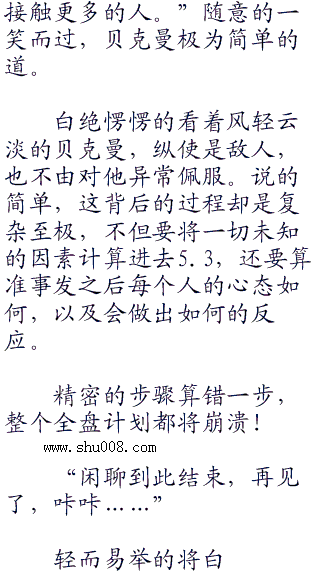 接触更多的人。”随意的一
笑而过，贝克曼极为简单的
道。
白绝愣愣的看着风轻云
淡的贝克曼，纵使是敌人，
也不由对他异常佩服。说的
简单，这背后的过程却是复
杂至极，不但要将一切未知
的因素计算进去5.3，还要算
准事发之后每个人的心态如
何，以及会做出如何的反
应。
精密的步骤算错一步，
整个全盘计划都将崩溃！
www.shu008.com
“闲聊到此结束，再见
了，咔咔……”
轻而易举的将白